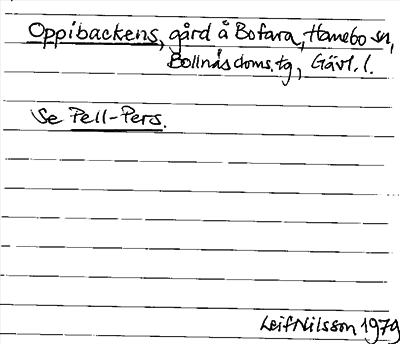 Oppibackens, gård å Bofara, Hanebo sn,
Bollnäs doms. tg, Gävl. l.
Se Pell-Pers.
Leif Nilsson 1979